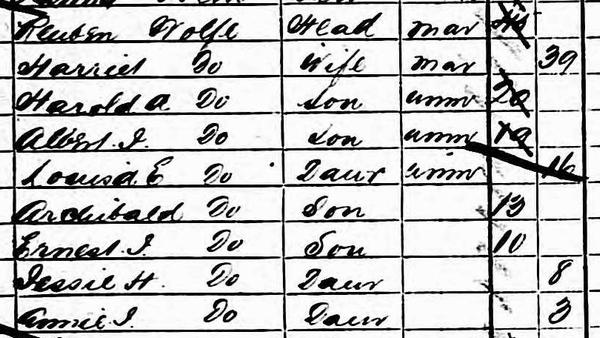 Reuben Wolfe Head mar
Harriet Do Wife mar 39
Harold A Do Son unmr 20
Albert J. Do Son unmr 19
Louisa E Do Daur unmr 16
Archibald Do Son 13
Ernest J. Do Son 10
Jessie H. Do Daur 8
Annie J. Do Daur 3